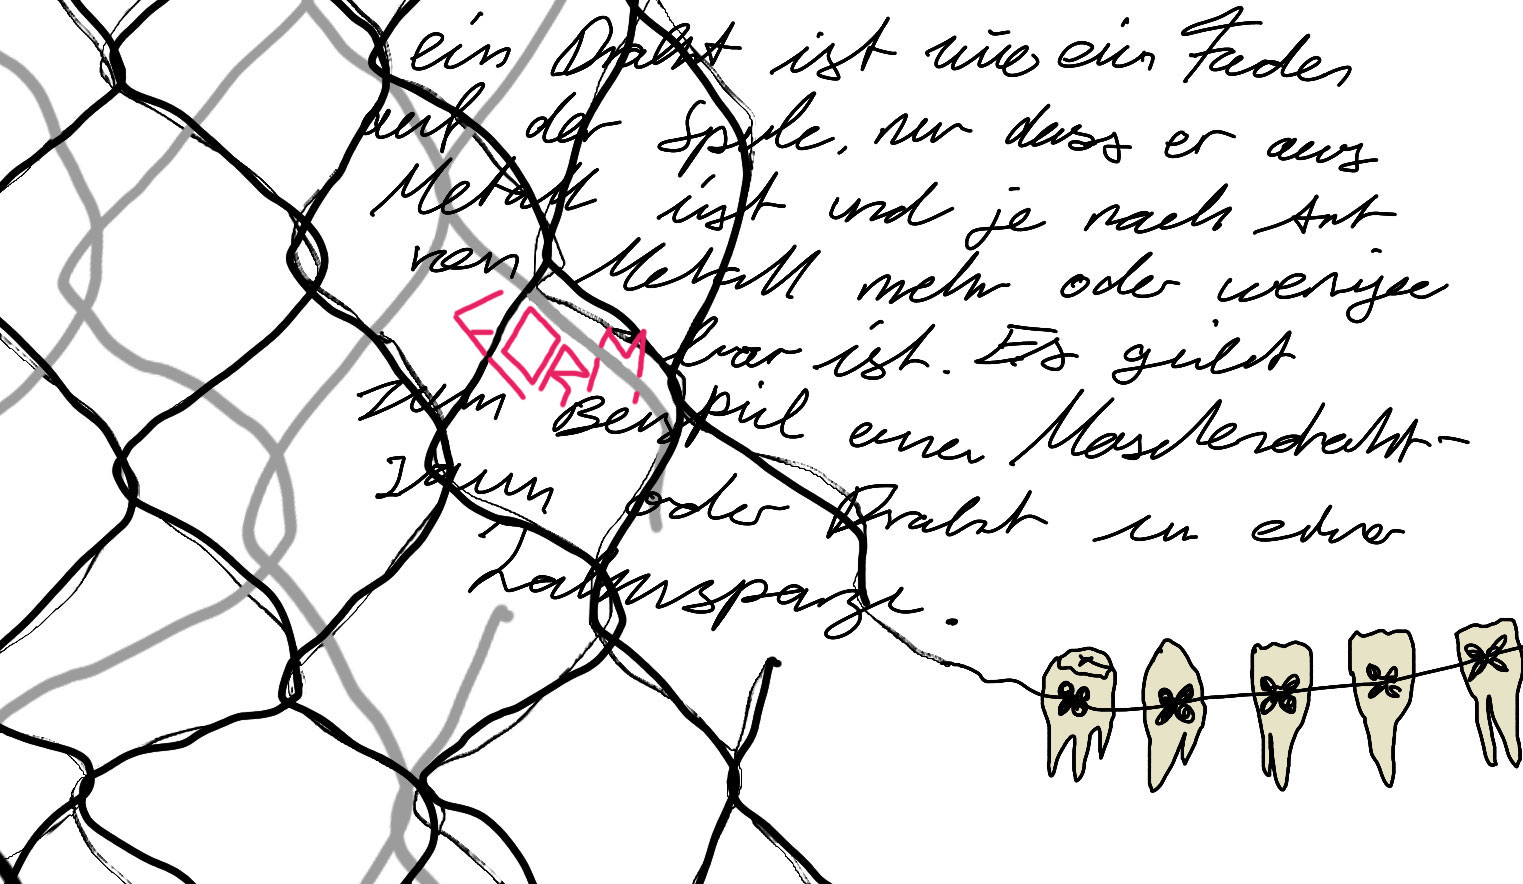 ein Draht ist wie ein Faden
auf der Spule, nur dass er aus
Metall ist und je nach Art
von Metall mehr oder weniger
FORM
bar ist. Es gibt
zum Beispiel einen Maschendraht-
Zaun oder Draht in einer
Zahnspange.